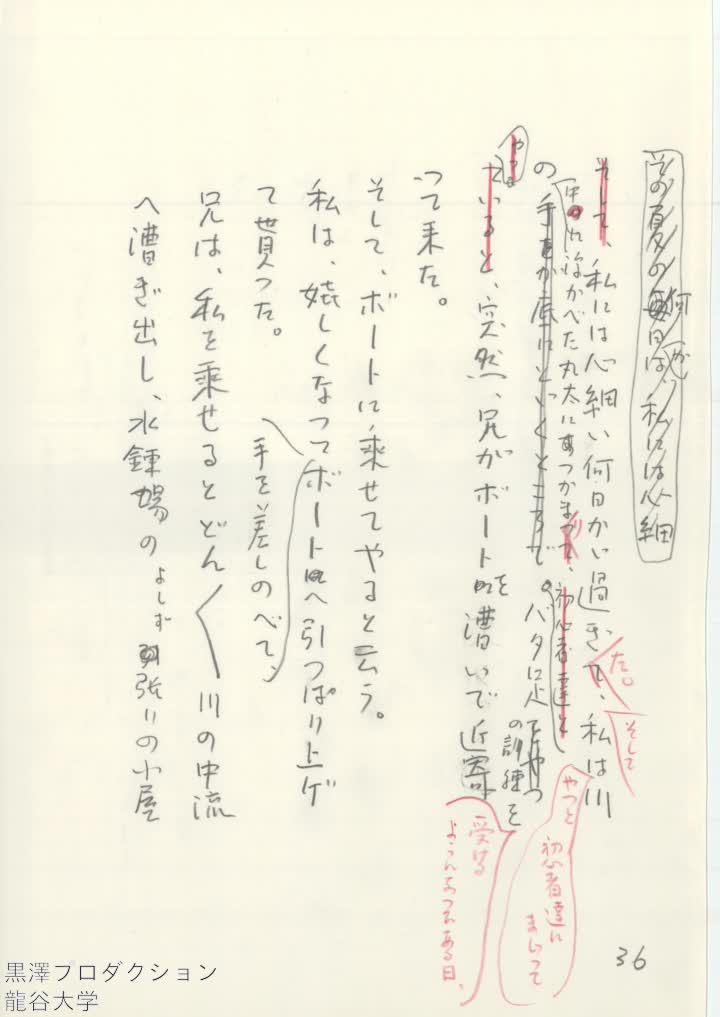 その夏の毎日は、私には心細
何 か
そして、私には心細い何日かい過ぎて、私は川
た。
そして
の手をが底にといくところで。バタ足をやつ
中のに浮かべた丸太につかまつて、初心者達と
の訓練を
やつと初心者達に
まじつて
やつて
ていると、突然、兄がボートを漕いで近寄
受ける
ようになつたある日、
つて来た。
そして、ボートに乗せてやると云う。
私は、嬉しくなつてボートへ引つぱり上げ
手を差しのべて、
て貰つた。
兄は、私を乗せるとどん〳〵川の中流
へ漕ぎ出し、水錬場のよしず張りの小屋
36
黒澤プロダクション
龍谷大学